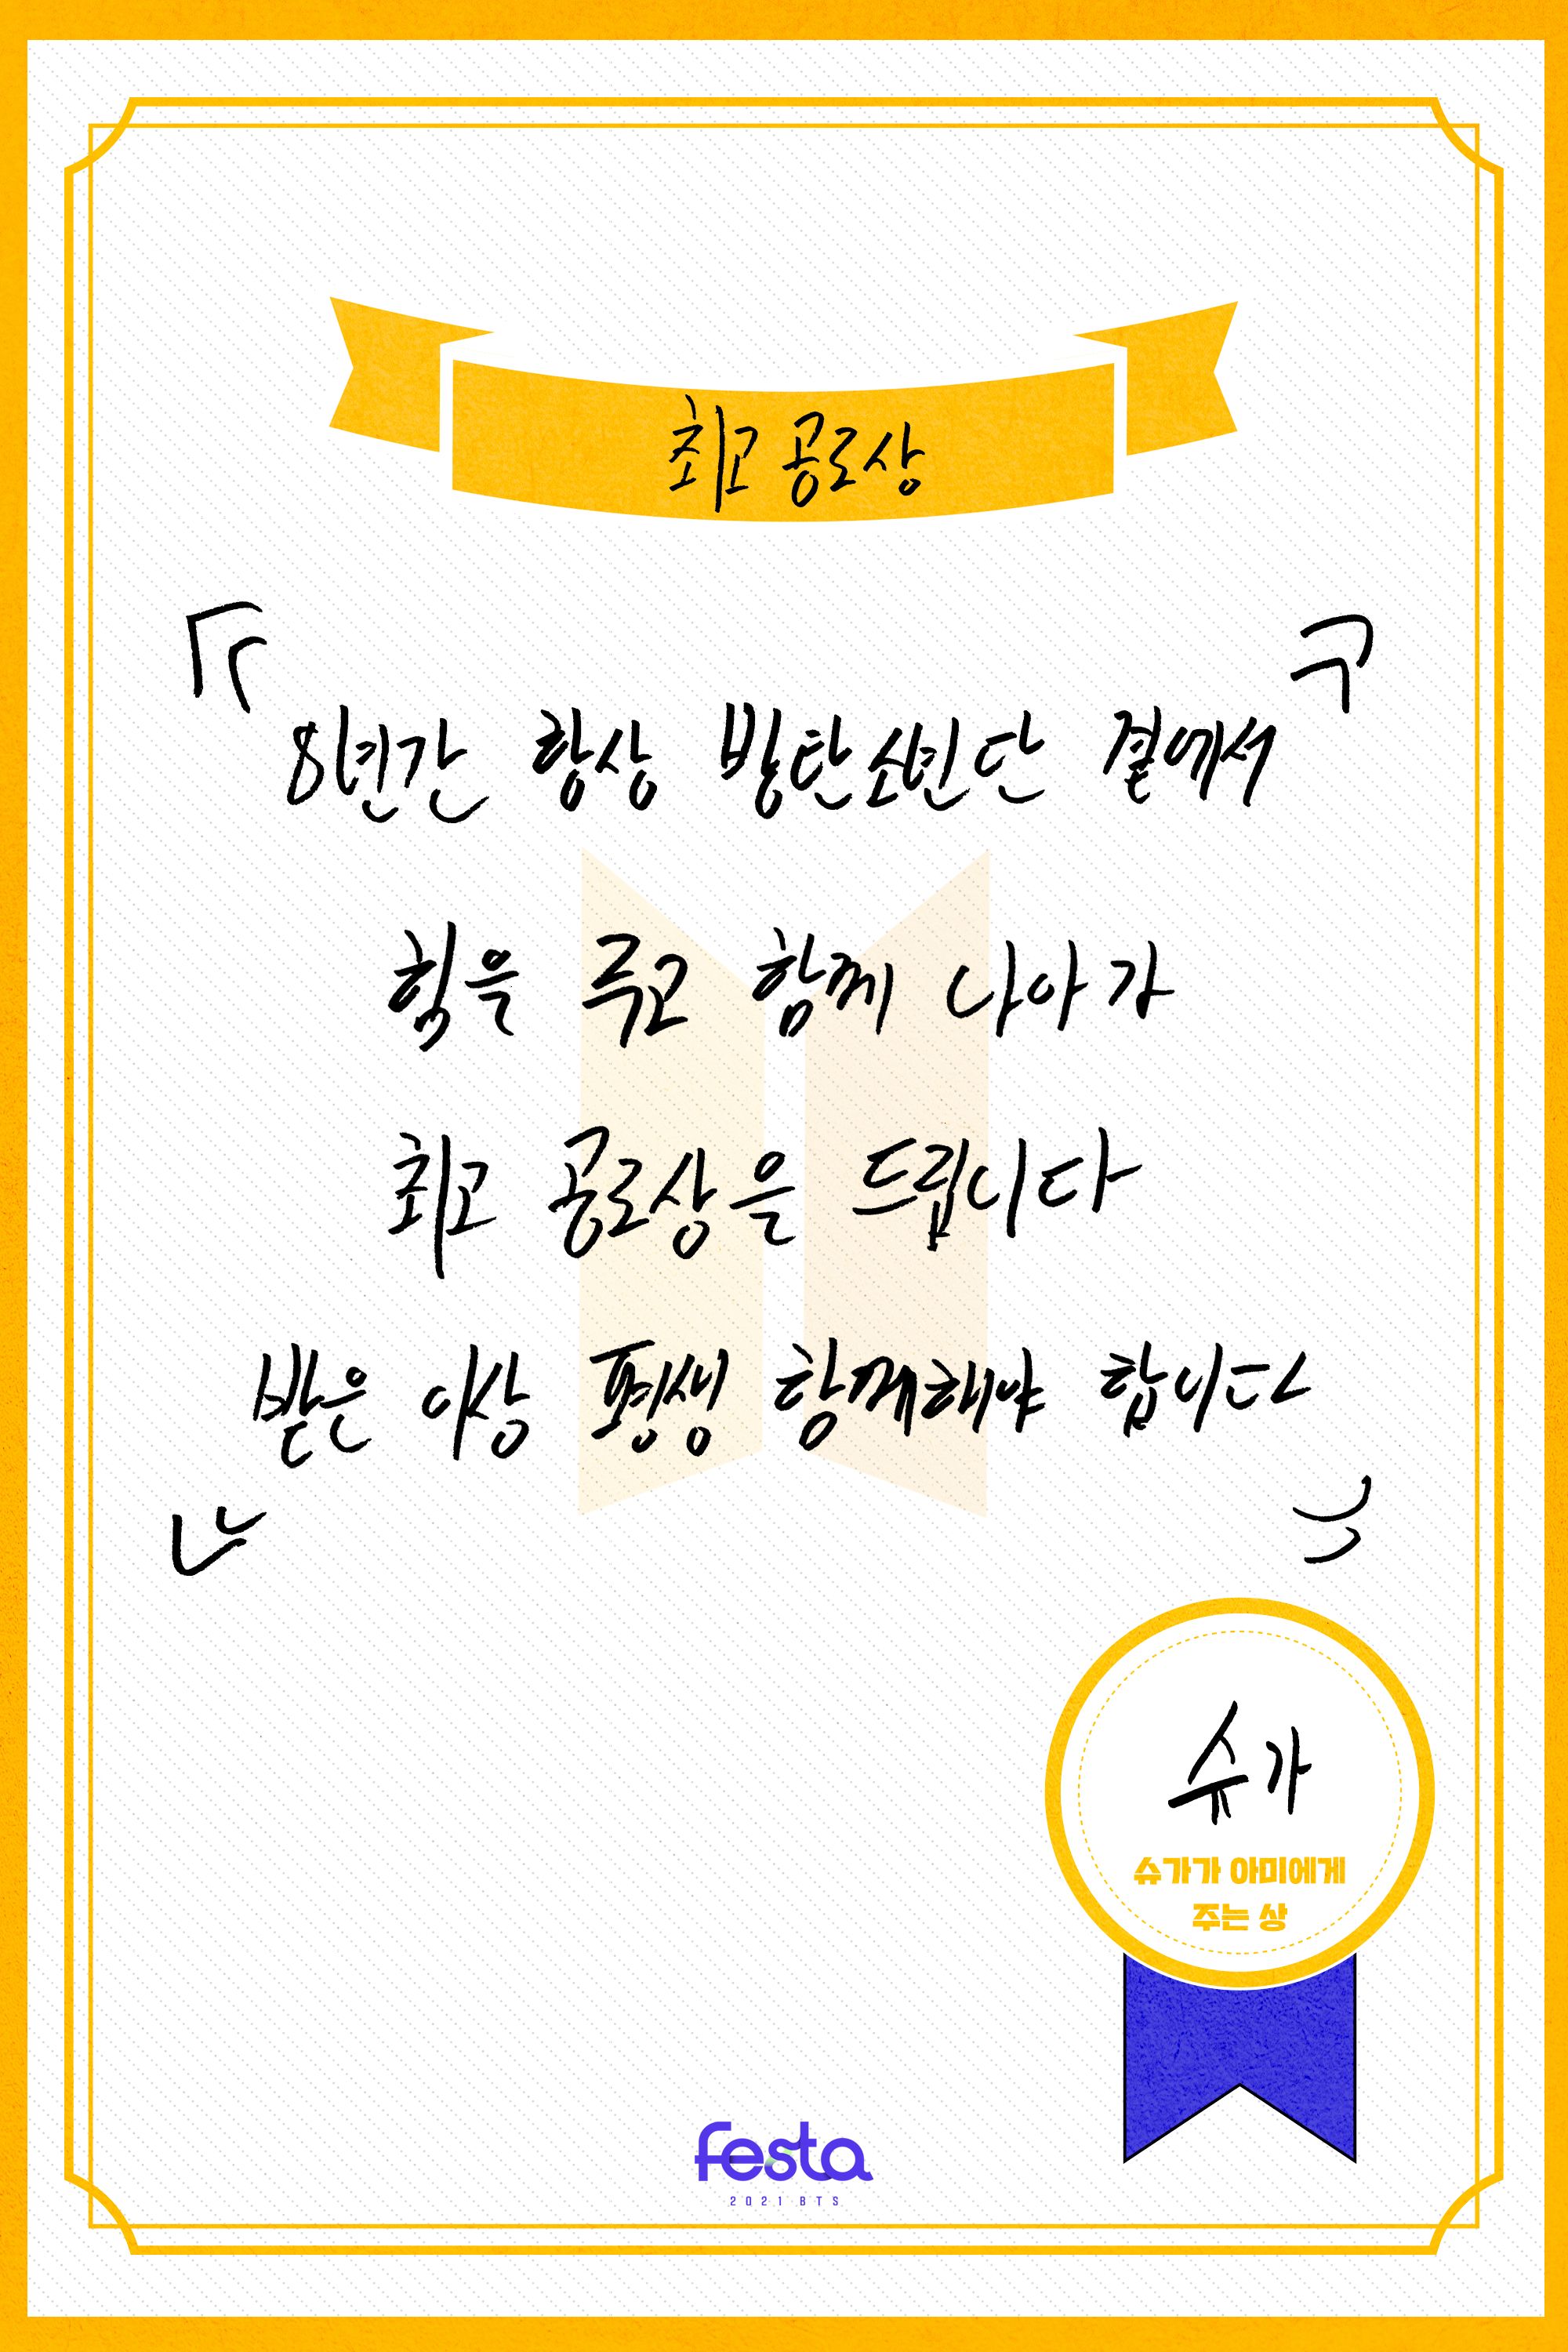 최고 공로상
『 』
8년간 항상 방탄소년단 곁에서
힘을 주고 함께 나아가
최고 공로상을 드립니다
받은 이상 평생 함께해야 합니다
슈가
슈가가 아미에게
주는 상
festa
2021 BTS